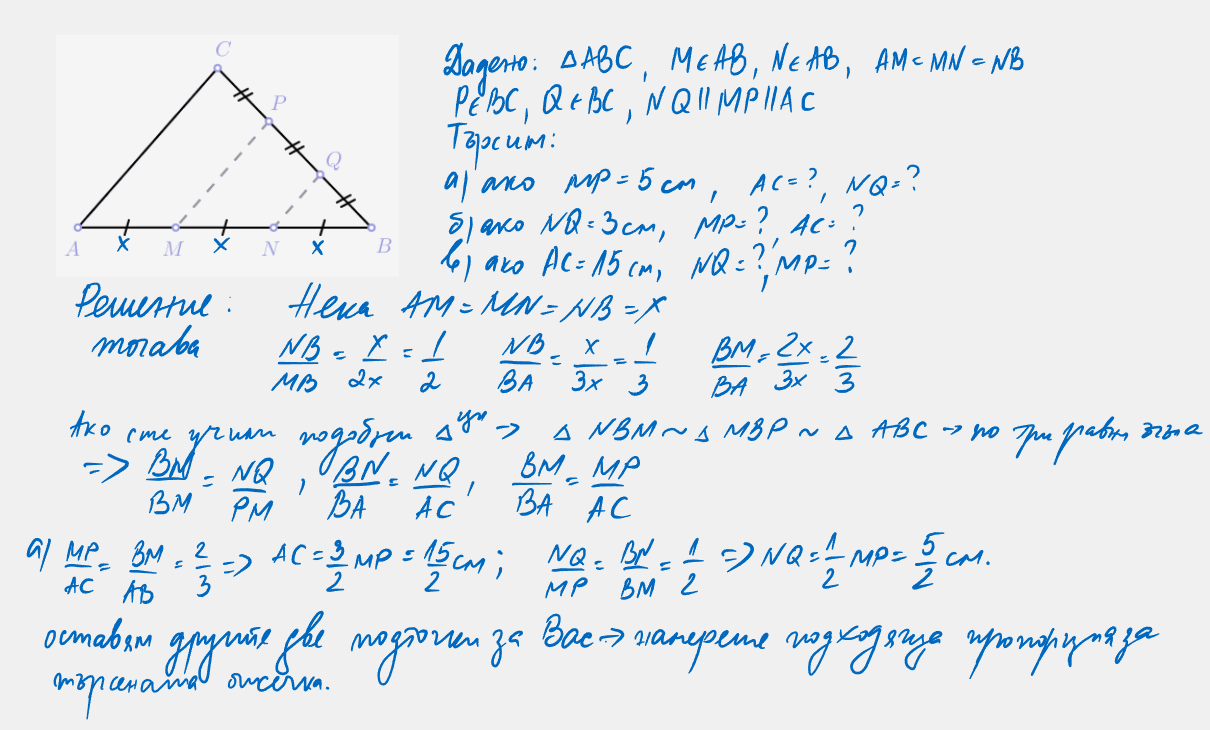 C
P
Q
A M N B
x x x
Дадено: △ABC, M∈AB, N∈AB, AM=MN=NB
P∈BC, Q∈BC, NQ||MP||AC
Търсим:
а) ако MP=5 cm, AC=?, NQ=?
б) ако NQ=3 cm, MP=?, AC=?
в) ако AC=15 cm, NQ=?, MP=?
Решение: Нека AM=MN=NB=x
тогава NB/MB = x/2x = 1/2 NB/BA = x/3x = 1/3 BM/BA = 2x/3x = 2/3
Ако сте учили подобни △ци → △ NBM ~ △ MBP ~ △ ABC → по три равни ъгъла
=> BN/BM = NQ/PM, BN/BA = NQ/AC, BM/BA = MP/AC
а) MP/AC = BM/AB = 2/3 => AC = 3/2 MP = 15/2 cm; NQ/MP = BN/BM = 1/2 => NQ = 1/2 MP = 5/2 cm.
оставям другите две подточки за Вас → намерете подходяща пропорция за
търсената отсечка.